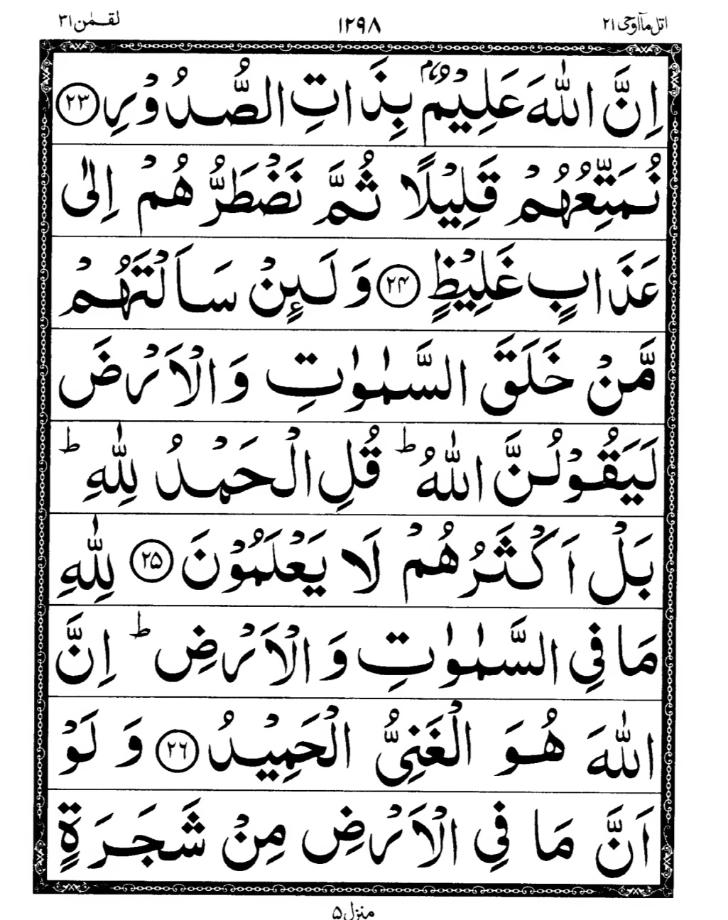 اتل مآ اوحی ۲۱ ۱۲۹۸ لقمٰن ۳۱
اِنَّ اللّٰهَ عَلِیْمٌۢ بِذَاتِ الصُّدُوْرِ ﴿۲۳﴾
نُمَتِّعُهُمْ قَلِیْلًا ثُمَّ نَضْطَرُّ هُمْ اِلٰی
عَذَابٍ غَلِیْظٍ ﴿۲۴﴾ وَ لَىِٕنْ سَاَلْتَهُمْ
مَّنْ خَلَقَ السَّمٰوٰتِ وَ الْاَرْضَ
لَیَقُوْلُنَّ اللّٰهُ ؕ قُلِ الْحَمْدُ لِلّٰهِ ؕ
بَلْ اَكْثَرُهُمْ لَا یَعْلَمُوْنَ ﴿۲۵﴾ لِلّٰهِ
مَا فِی السَّمٰوٰتِ وَ الْاَرْضِ ؕ اِنَّ
اللّٰهَ هُوَ الْغَنِیُّ الْحَمِیْدُ ﴿۲۶﴾ وَ لَوْ
اَنَّ مَا فِی الْاَرْضِ مِنْ شَجَرَةٍ
منزل ۵